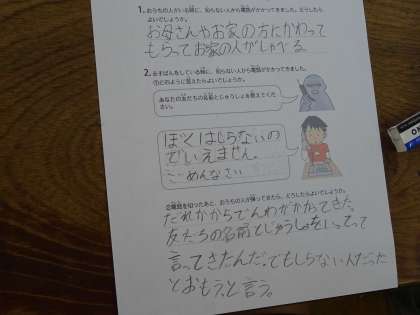 1. おうちの人がいる時に、知らない人から電話がかかってきました。どうしたら
よいでしょうか。
お母さんやお家の方にかわって
もらってお家の人がしゃべる
2. るすばんをしている時に、知らない人から電話がかかってきました。
①どのように答えたらよいでしょうか。
あなたの友だちの名前とじゅうしょを教えてくだ
さい。
ぼくはしらないの
でいえません。
ごめんなさい
②電話を切ったあと、おうちの人が帰ってきたら、どうしたらよいでしょうか。
だれかからでんわがかかてきた。
友だちの名前とじゅうしょをいってって
言ってきたんだ。でもしらない人だった
とおもう。と言う。